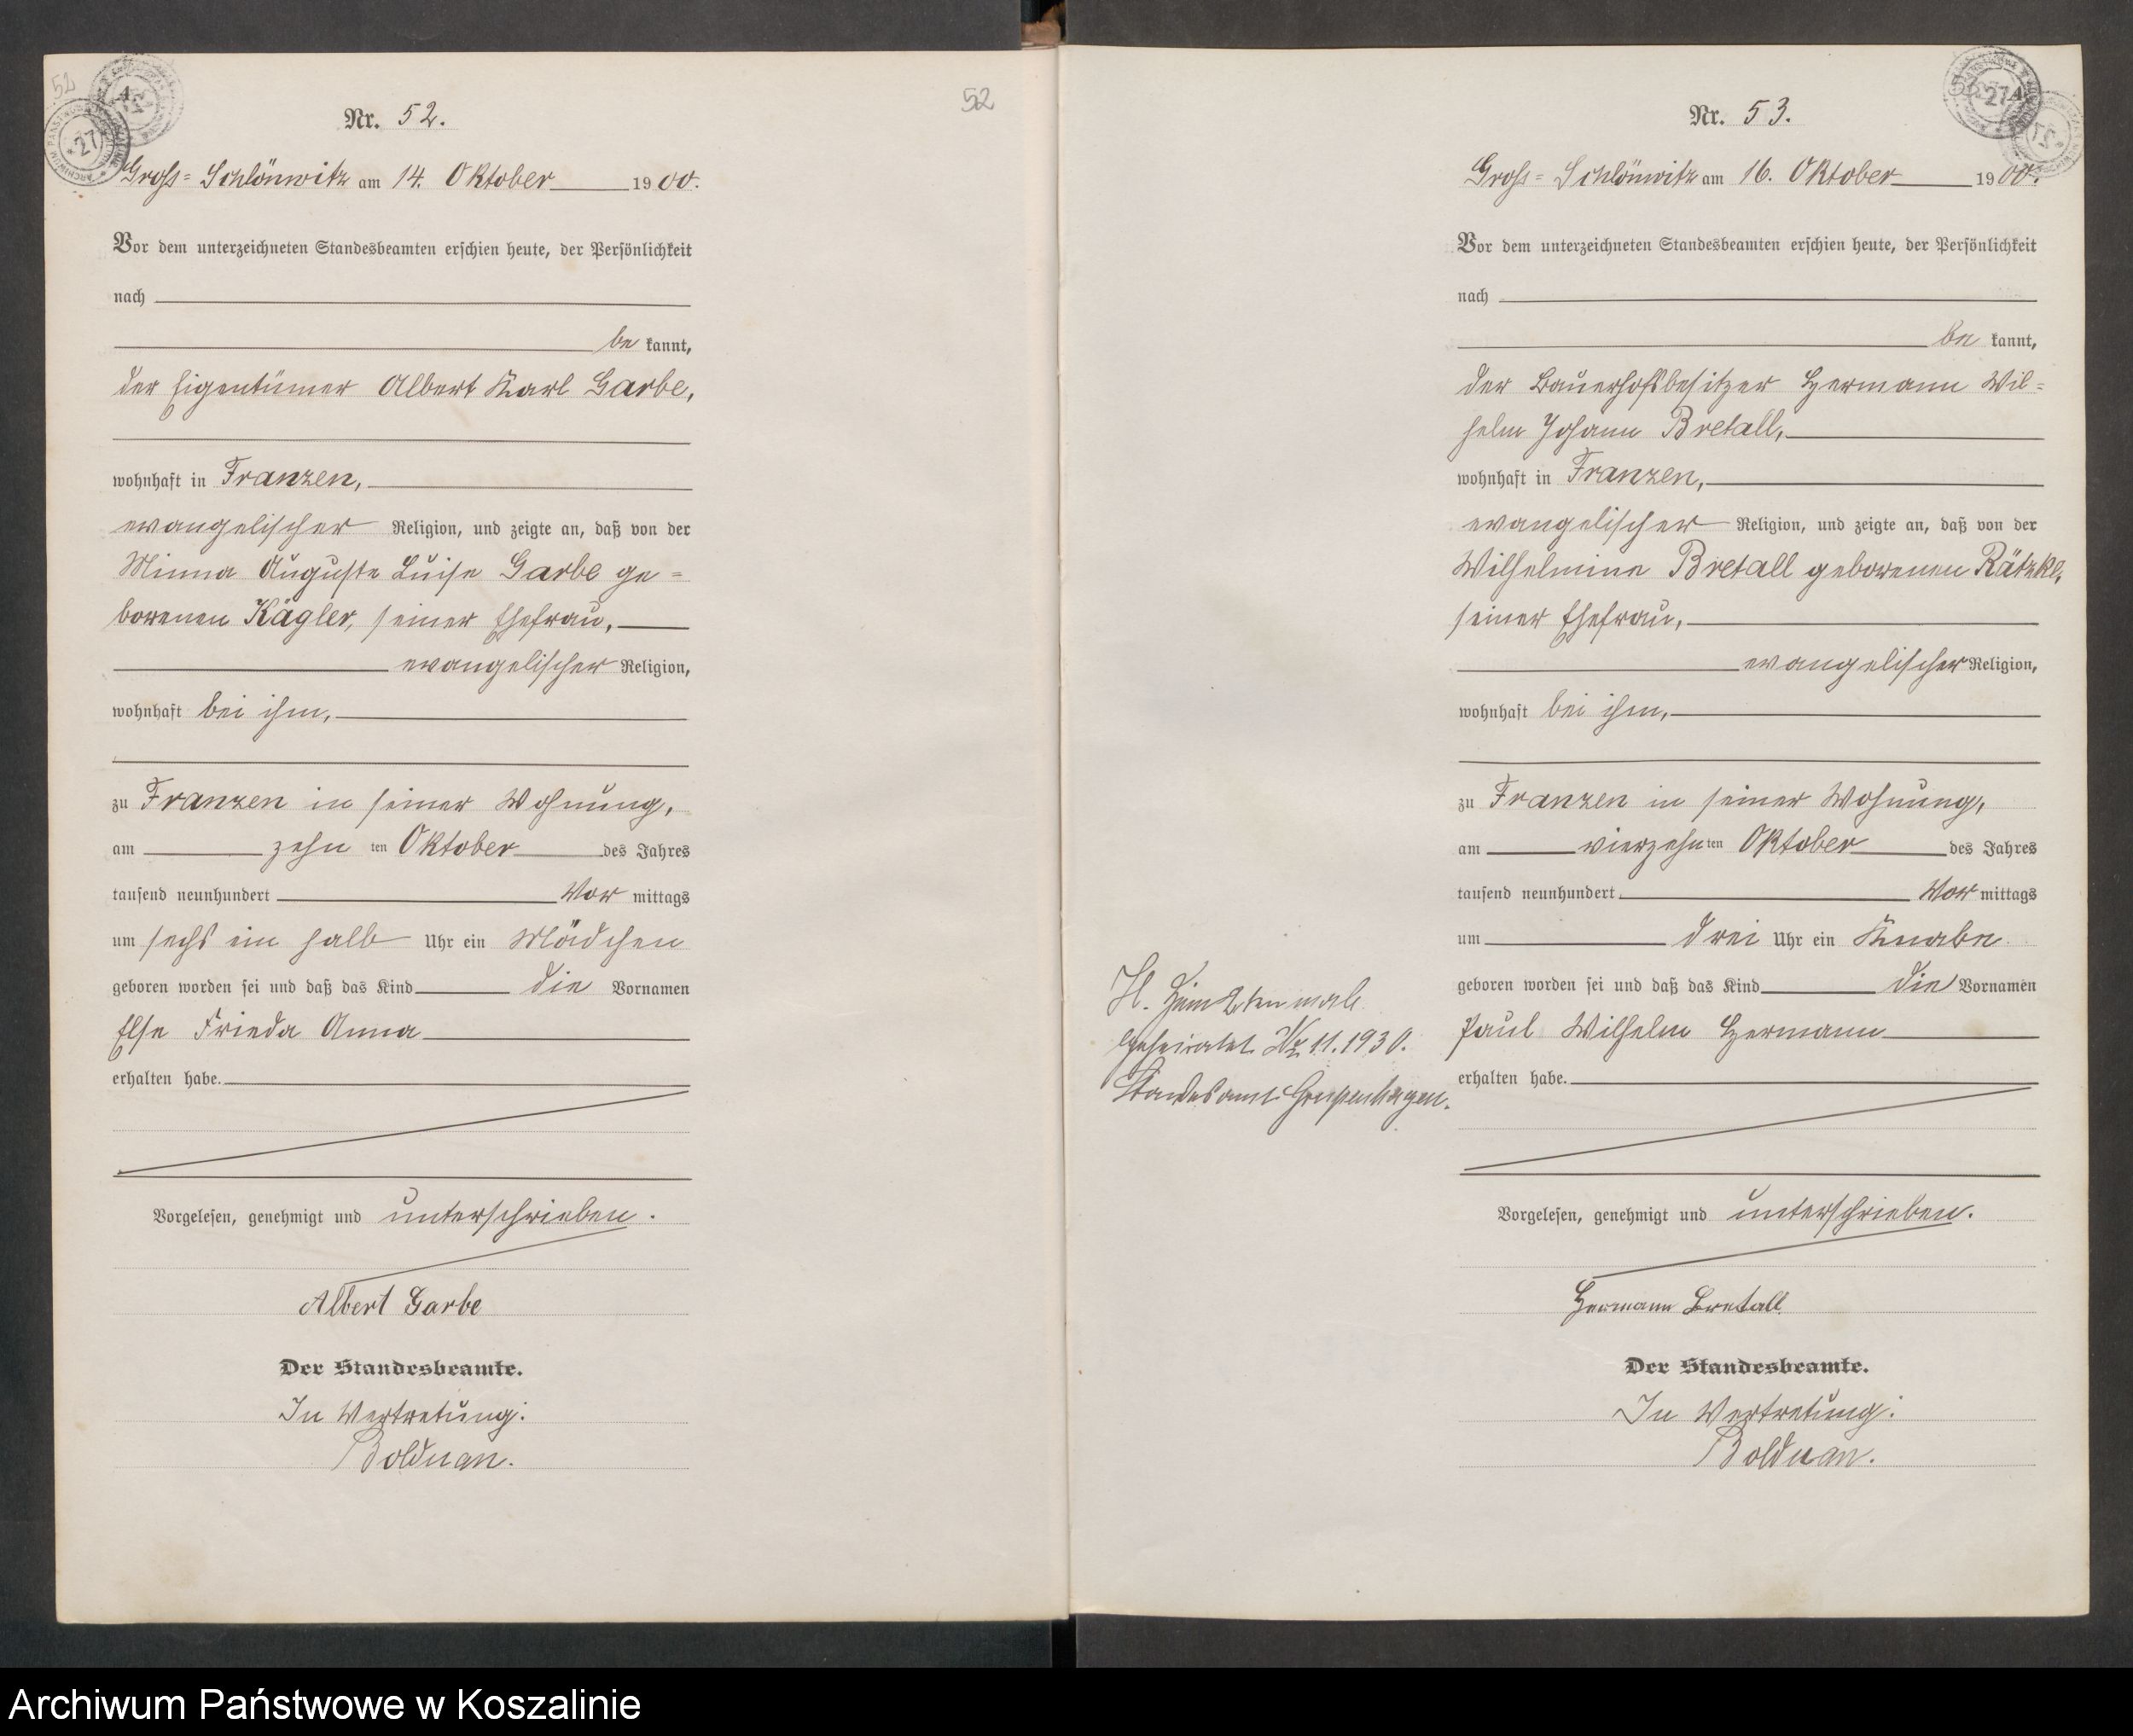 52
52
Nr. 52.
Gross-Schlönwitz am 14. Oktober 1900.
Vor dem unterzeichneten Standesbeamten erschien heute, der Persönlichkeit
nach
be kannt,
der Eigentümer Albert Karl Garbe,
wohnhaft in Franzen,
evangelischer Religion, und zeigte an, daß von der
Minna Auguste Luise Garbe ge-
borenen Kägler, seiner Ehefrau,
evangelischer Religion,
wohnhaft bei ihm,
zu Franzen in seiner Wohnung,
am zehn ten Oktober des Jahres
tausend neunhundert Vor mittags
um sechs ein halb Uhr ein Mädchen
geboren worden sei und daß das Kind die Vornamen
Else Frieda Anna
erhalten habe.
Vorgelesen, genehmigt und unterschrieben.
Albert Garbe
Der Standesbeamte.
In Vertretung:
Bolduan.
Nr. 53.
Gross-Schlönwitz am 16. Oktober 1900.
Vor dem unterzeichneten Standesbeamten erschien heute, der Persönlichkeit
nach
be kannt,
der Bauerhofsbesitzer Hermann Wil-
helm Johann Bretall,
wohnhaft in Franzen,
evangelischer Religion, und zeigte an, daß von der
Wilhelmine Bretall geborenen Rätzke,
seiner Ehefrau,
evangelischer Religion,
wohnhaft bei ihm,
zu Franzen in seiner Wohnung,
am vierzehn ten Oktober des Jahres
tausend neunhundert Vor mittags
um drei Uhr ein Knabe
geboren worden sei und daß das Kind die Vornamen
Paul Wilhelm Hermann
erhalten habe.
Vorgelesen, genehmigt und unterschrieben.
Hermann Bretall
Der Standesbeamte.
In Vertretung:
Bolduan.
H. Zum 2ten male
geheiratet 11.1930.
Standesamt
Archiwum Państwowe w Koszalinie